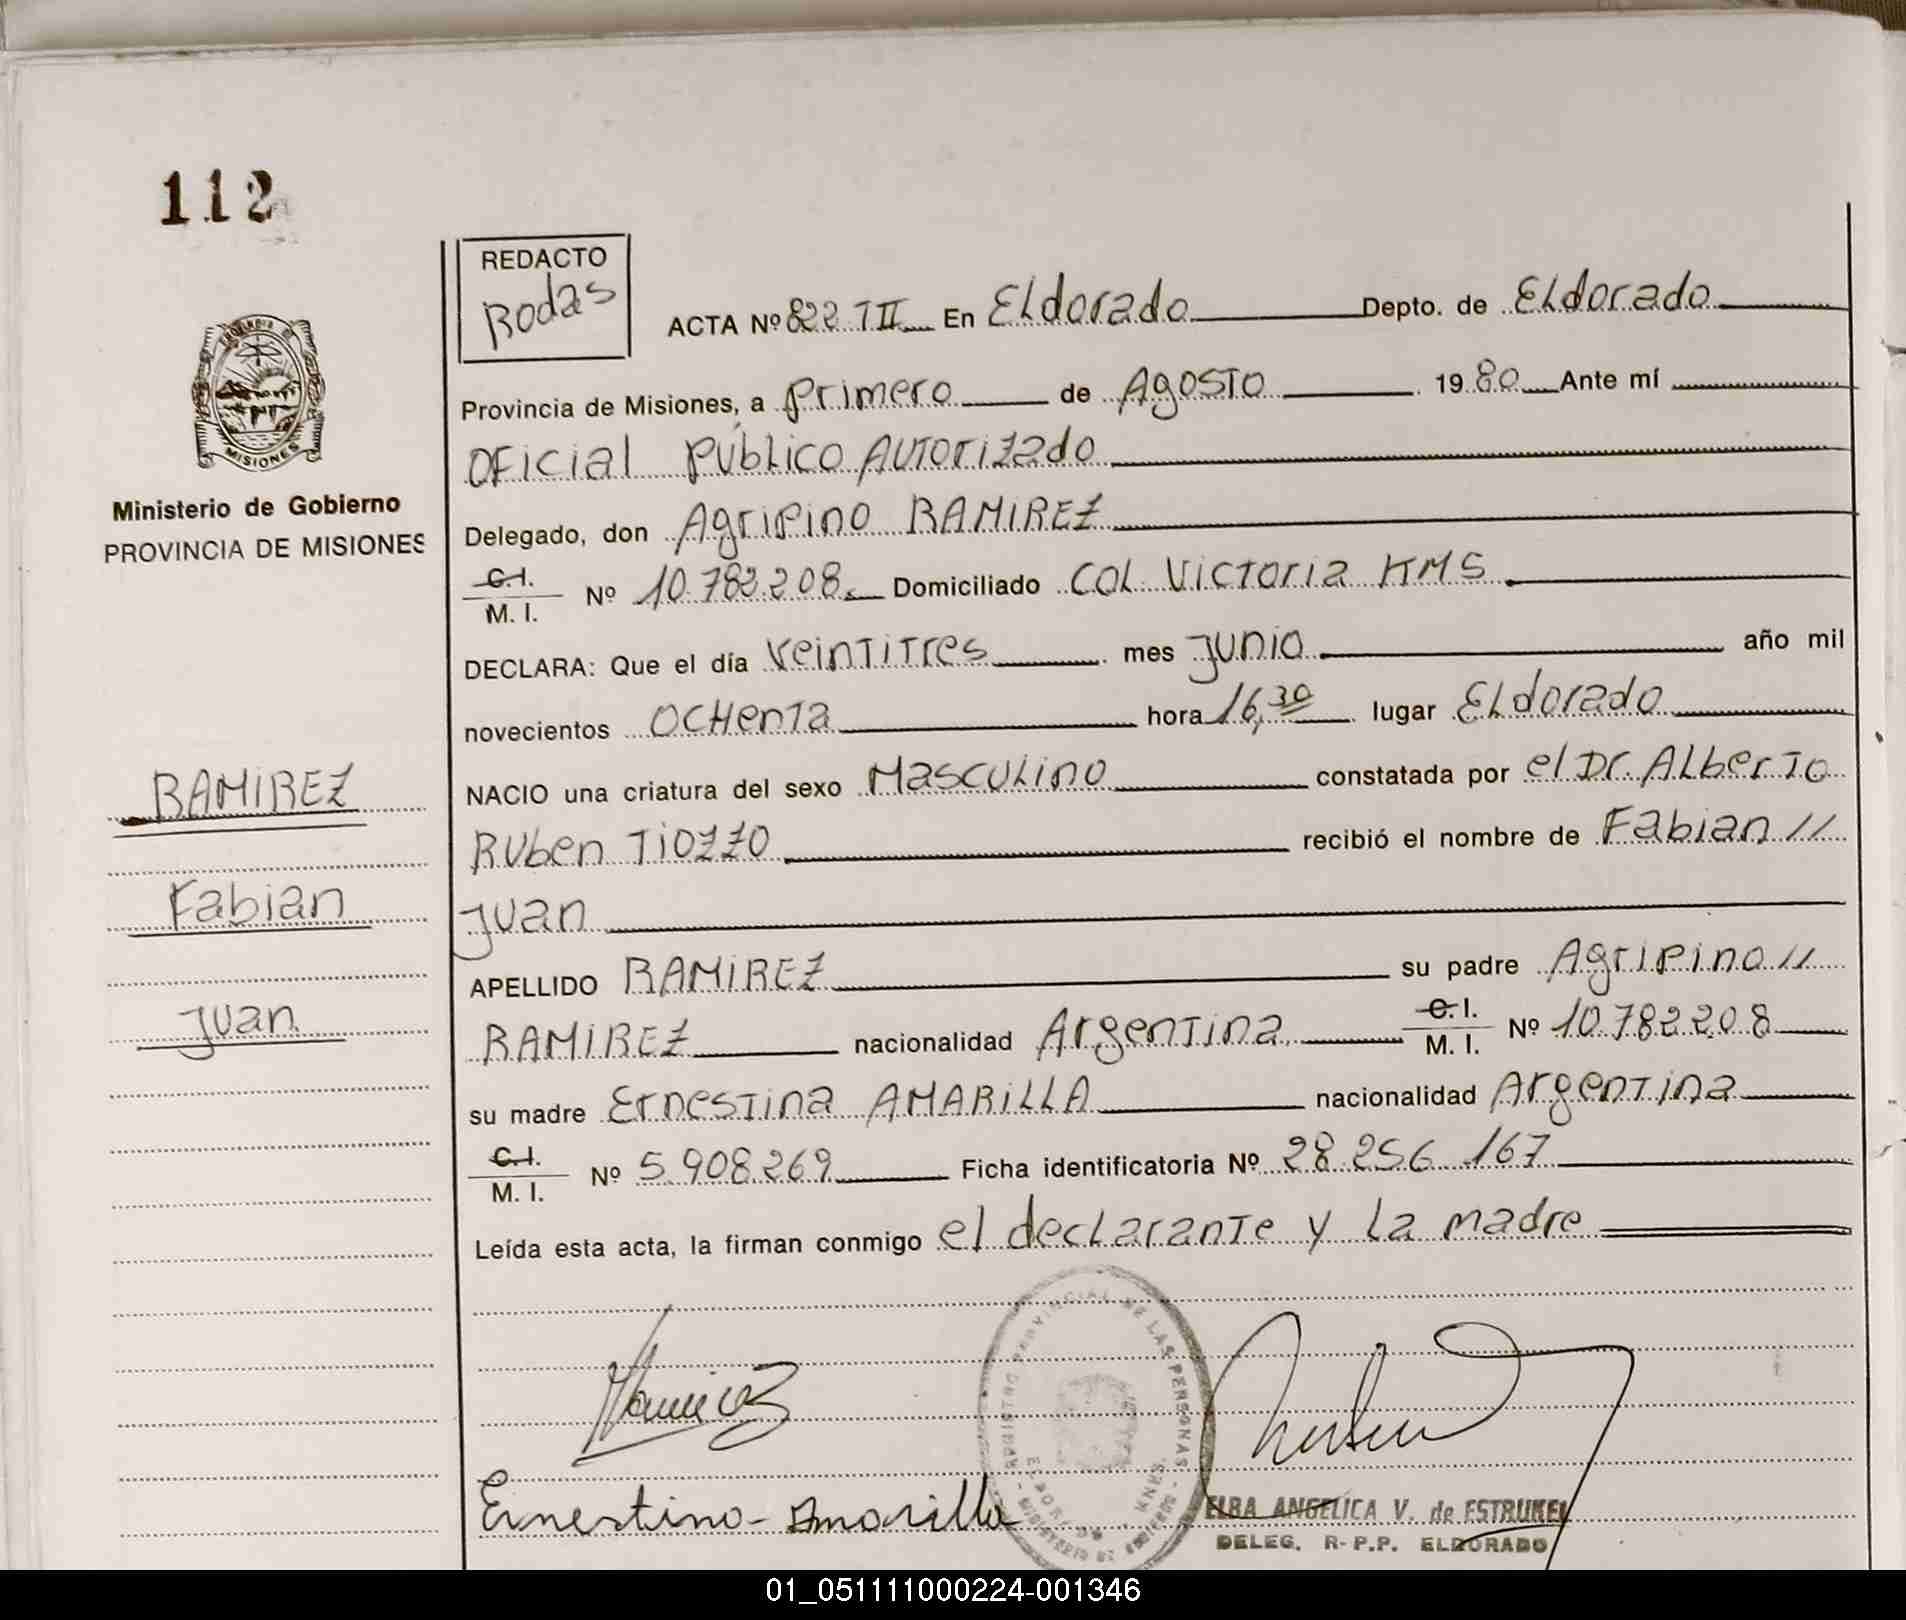 112
REDACTO
Rodas
ACTA Nº 822 TII En Eldorado Depto. de Eldorado
MISIONES
Provincia de Misiones, a primero de Agosto 1980 Ante mí
Oficial Público Autorizado
Ministerio de Gobierno
PROVINCIA DE MISIONES
Delegado, don Agripino RAMIREZ
C.I.
M. I. Nº 10.782.208. Domiciliado COL. Victoria KM5
DECLARA: Que el día veintitres mes Junio año mil
novecientos ochenta hora 16,30 lugar Eldorado
RAMIREZ
NACIO una criatura del sexo Masculino constatada por el Dr. Alberto
Ruben TIOZZO recibió el nombre de Fabian //
Fabian
Juan
APELLIDO RAMIREZ su padre Agripino //
Juan
RAMIREZ nacionalidad Argentina C.I. M. I. Nº 10.782208
su madre Ernestina AMARILLA nacionalidad Argentina
C.I.
M. I. Nº 5.908.269 Ficha identificatoria Nº 28.256.167
Leída esta acta, la firman conmigo el declarante y la madre
REGISTRO PROVINCIAL DE LAS PERSONAS
Ramirez
Ernestina Amarilla
ELBA ANGELICA V. de ESTRUKEL
DELEG. R-P.P. ELDORADO
01_051111000224-001346